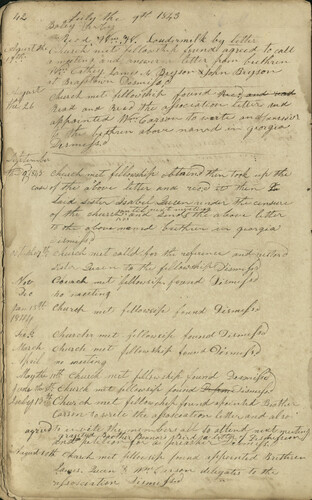 42 July the 9th 1843
Read Wm W. Loudermilk by letter
August the 19th church met fellowship found agreed to call
a meeting and answer letter from bethren
Wm Cathey James Bryson & John Bryson
Dismissed
August the 26 church met fellowship found
read and read the association letter and
appointed Wm Carson to write and answer
to the bethren above named in georgia
Dismissed
September 1843 church met fellowship obtained then took up the
case of the above letter and read it then
said sister Queen under the censure
of the church and sends the above letter
to the above named bethrin in georgia
Dismissed
church met calld for the reference and restord
Queen to the fellowship Dismissed
Nov church met fellowship found Dismissed
Dec no meeting
Jan 1844 church met fellowship found Dismissed
Feb church met fellowship found Dismissed
March church met fellowship found Dismissed
no meeting
May the 11th church met fellowship found Dismissed
June the 8th church met fellowship found Dismissed
July 13th church met fellowship found appointed Brother
Carson to write the association letter and also
agreed to invite the members all to attend next meeting
August 10th church met fellowship found appointed Brethren
James Queen & Wm Carson delegates to the
association Dismissed